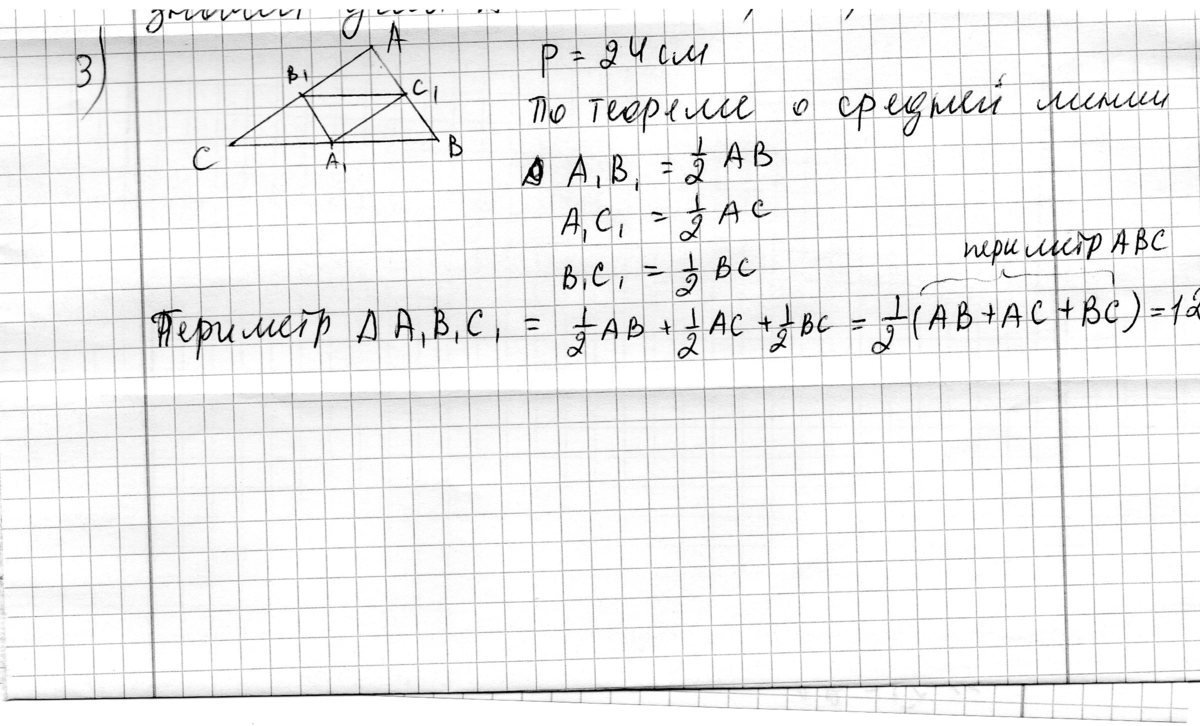 3)
A
B₁
C₁
C
A₁
B
P = 24 см
По теореме о средней линии
A₁B₁ = 1/2 AB
A₁C₁ = 1/2 AC
B₁C₁ = 1/2 BC
периметр ABC
Периметр Δ A₁B₁C₁ = 1/2 AB + 1/2 AC + 1/2 BC = 1/2 (AB + AC + BC) = 12